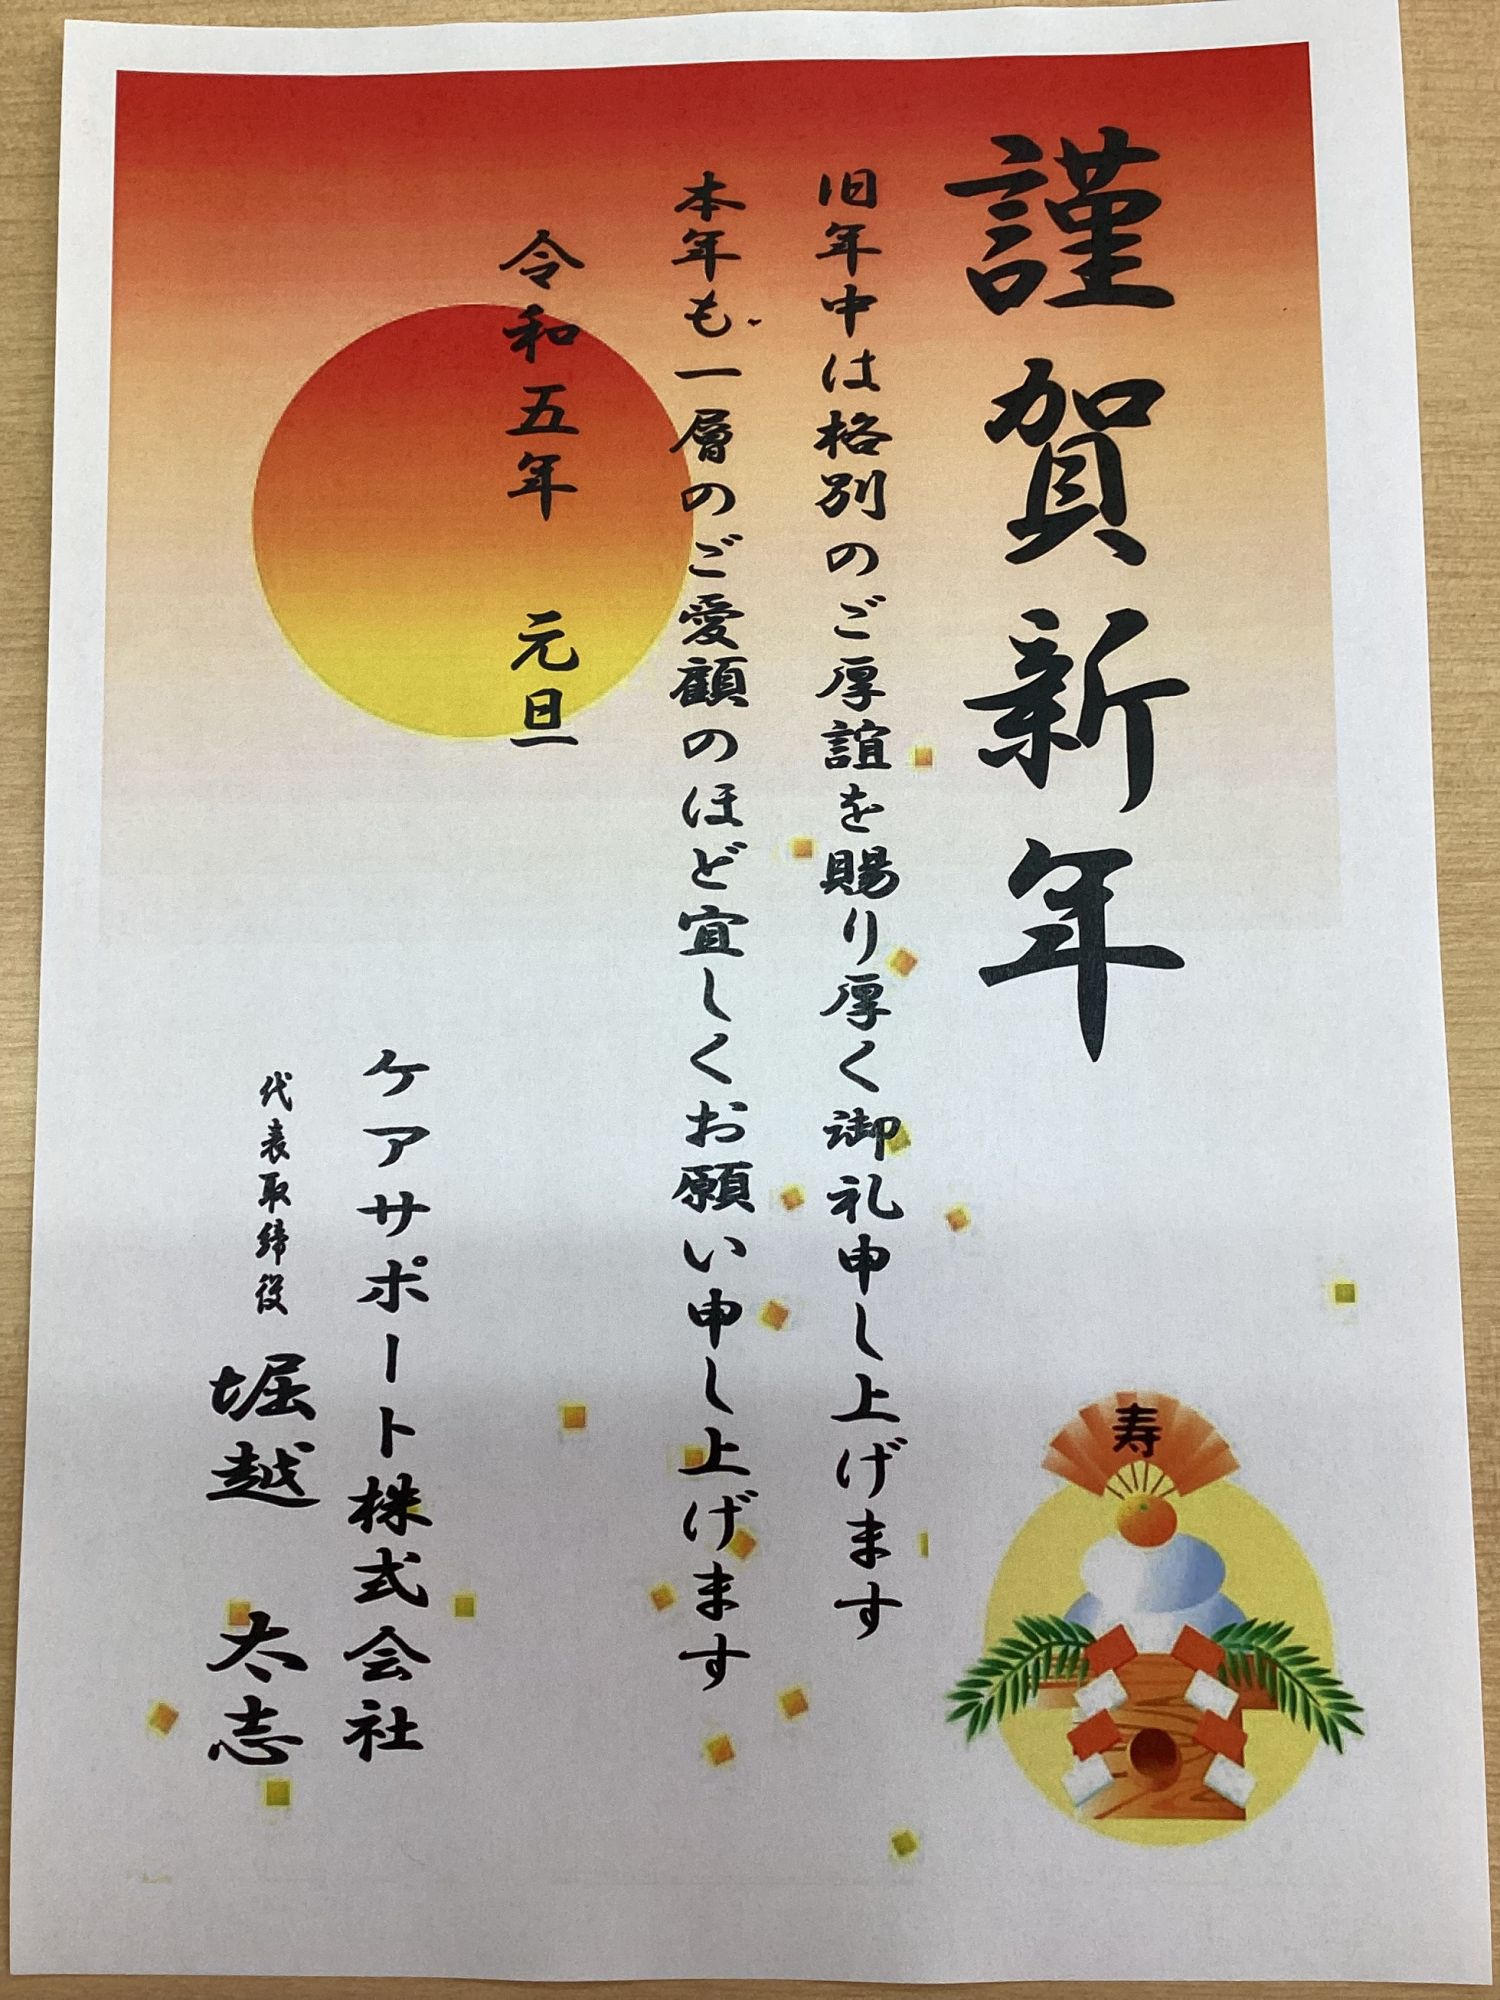 謹賀新年
旧年中は格別のご厚誼を賜り厚く御礼申し上げます
本年も一層のご愛顧のほど宜しくお願い申し上げます
令和五年 元旦
ケアサポート株式会社
代表取締役 堀越 太志
寿